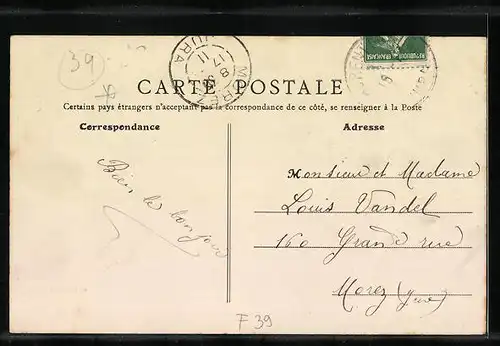 39
MOREZ JURA
17
11
CARTE POSTALE
Certains pays étrangers n'acceptant pas la correspondance de ce côté, se renseigner à la Poste
Correspondance
Adresse
Bien le bonjour
Monsieur et Madame
Louis Vandel
160 Grande rue
Morez (Jura)
F 39